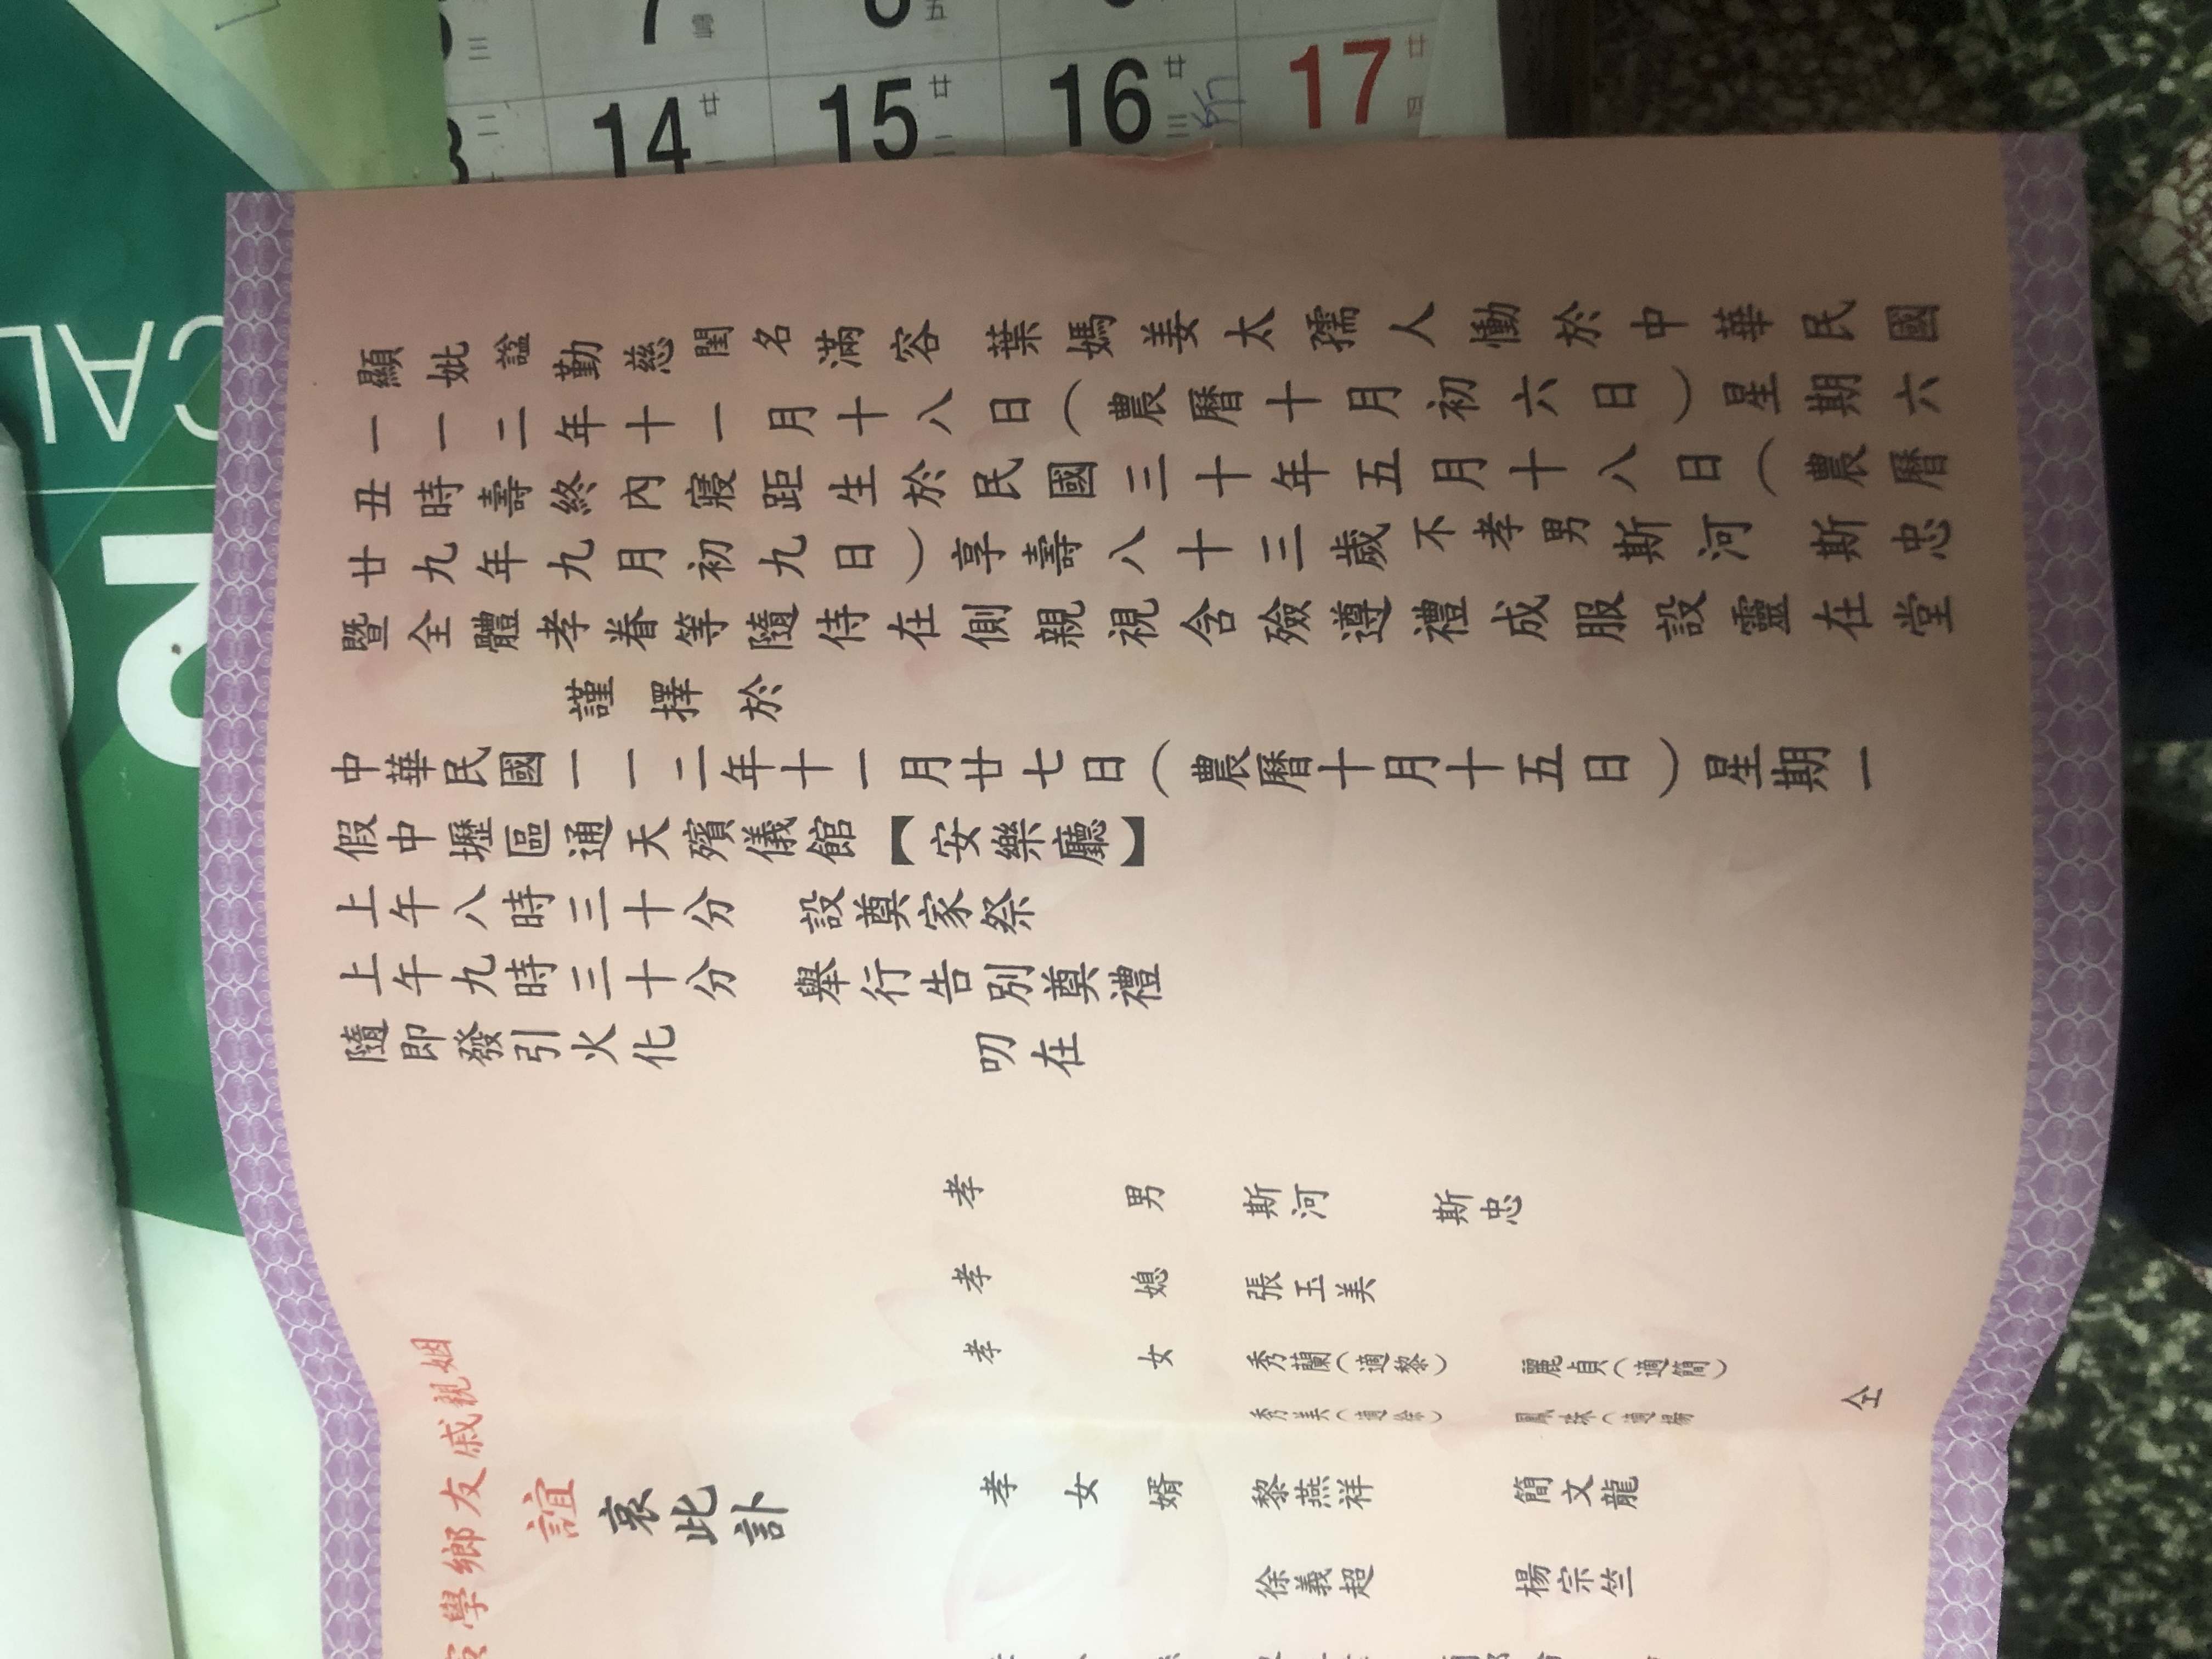 顯妣諡勤慈閨名滿容 葉媽姜太孺人慟於中華民國
一一二年十一月十八日（農曆十月初六日）星期六
丑時壽終內寢距生於民國三十年五月十八日（農曆
廿九年九月初九日）享壽八十三歲不孝男斯河 斯忠
暨全體孝眷等隨侍在側親視含殮遵禮成服設靈在堂
謹擇於
中華民國一一二年十一月廿七日（農曆十月十五日）星期一
假中壢區通天殯儀館【安樂廳】
上午八時三十分 設奠家祭
上午九時三十分 舉行告別奠禮
隨即發引火化 叨在
學鄉友戚親姻
誼
哀此訃
孝男 斯河 斯忠
孝媳 張玉美
孝女 秀蘭（適黎） 麗貞（適簡）
秀美（適徐） 鳳珠（適楊
仝
孝女婿 黎燕祥 簡文龍
徐義超 楊宗竺
14 廿
15 廿
16 廿三
17 廿四
7
CAL